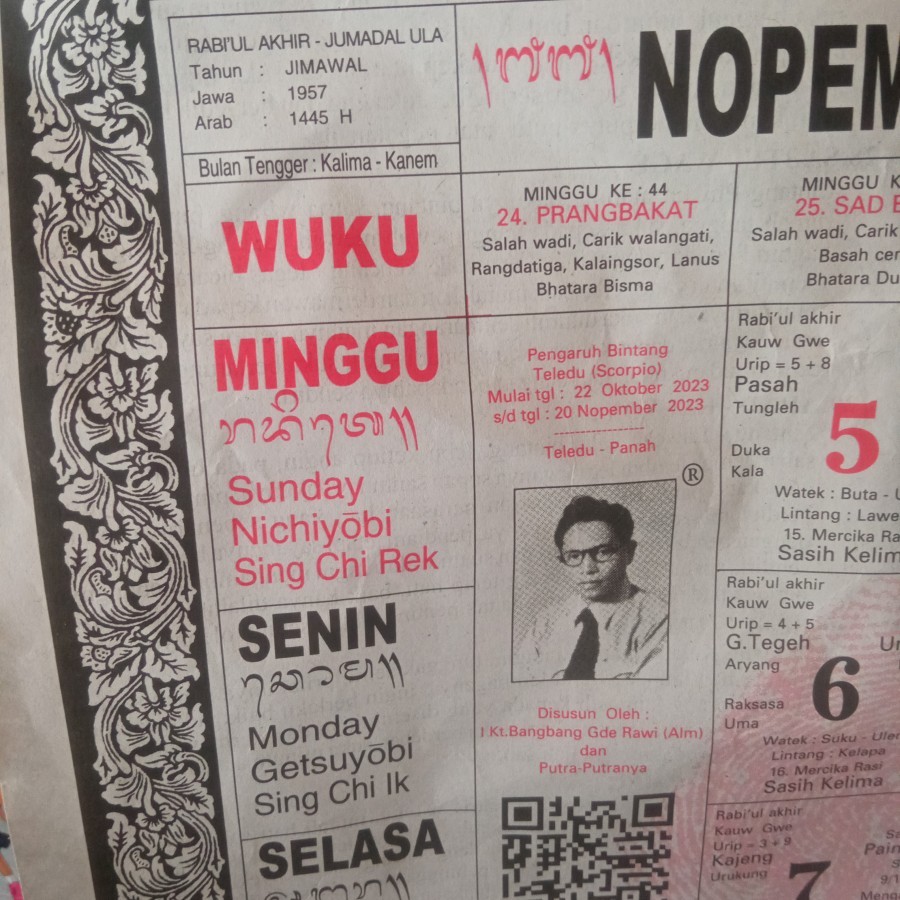 RABI'UL AKHIR - JUMADAL ULA
Tahun : JIMAWAL
Jawa : 1957
Arab : 1445 H
Bulan Tengger : Kalima - Kanem
NOPEM
WUKU
MINGGU KE : 44
24. PRANGBAKAT
Salah wadi, Carik walangati,
Rangdatiga, Kalaingsor, Lanus
Bhatara Bisma
MINGGU K
25. SAD
Salah wadi, Carik
Basah
Bhatara
MINGGU
Sunday
Nichiyōbi
Sing Chi Rek
Pengaruh Bintang
Teledu (Scorpio)
Mulai tgl : 22 Oktober 2023
s/d tgl : 20 Nopember 2023
Teledu - Panah
®
Rabi'ul akhir
Kauw Gwe
Urip = 5 + 8
Pasah
Tungleh
5
Duka
Kala
Watek : Buta -
Lintang :
15. Mercika
Sasih
SENIN
Monday
Getsuyōbi
Sing Chi Ik
Disusun Oleh :
I Kt.Bangbang Gde Rawi (Alm)
dan
Putra-Putranya
Rabi'ul akhir
Kauw Gwe
Urip = 4 + 5
G.Tegeh
Aryang
6
Raksasa
Uma
Watek : Suku -
Lintang : Kelapa
16. Mercika Rasi
Sasih Kelima
SELASA
Rabi'ul akhir
Kauw Gwe
Urip = 3 + 9
Kajeng
Urukung
7